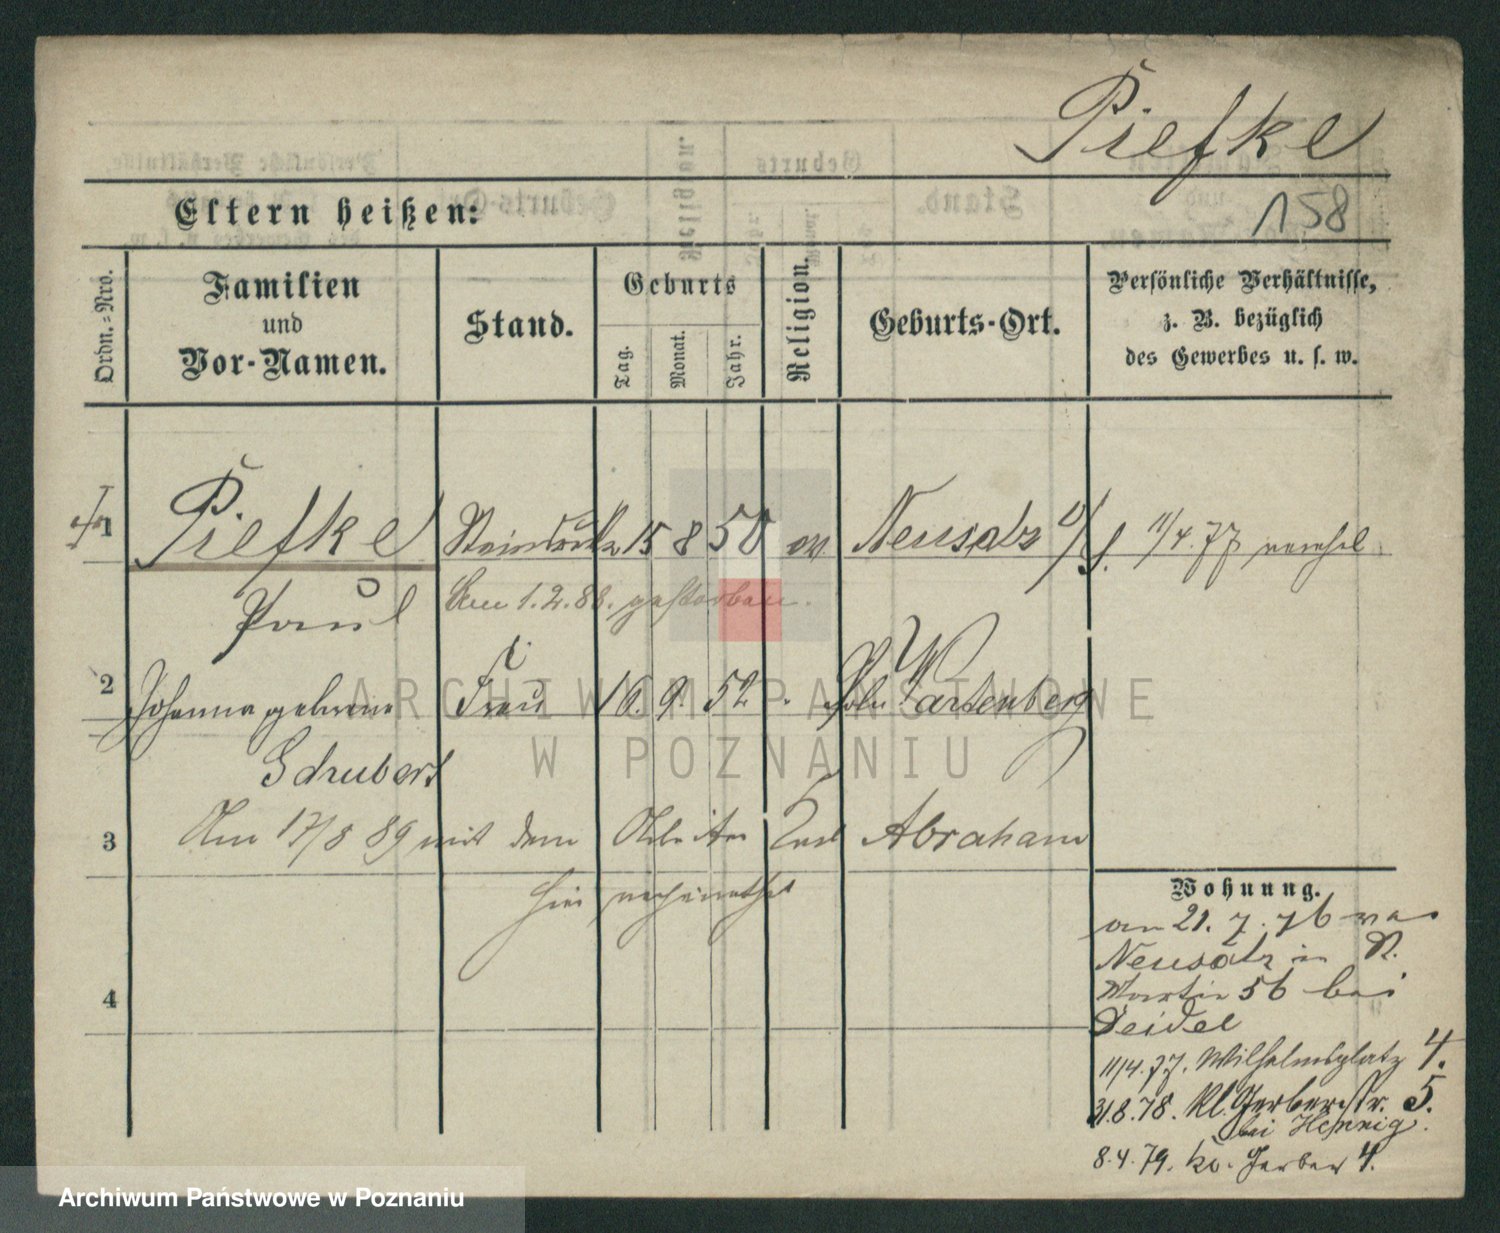 Piefke
158
Eltern heißen:
Ordn.-Nro.
Familien
und
Vor-Namen.
Stand.
Geburts
Tag.
Monat.
Jahr.
Religion.
Geburts-Ort.
Persönliche Verhältnisse,
z. B. bezüglich
des Gewerbes u. s. w.
1 Piefke Steindrucker 15 8 50 ev Neusalz a/ 11/4.77
Paul Am 1.2.88. gestorben.
2 Johanna geborene Frau 16. 9. 52 Poln Wartenberg
Schubert
3 Am 17/8 89 mit dem Arbeiter Karl Abraham
hier verheirathet
4
Wohnung.
am 21. 7. 76 von
Neusalz in St.
Martin 56 bei
Seidel
11/4.77. Wilhelmsplatz 4.
31.8.78. Kl. Gerberstr. 5.
bei Hennig.
8.4.79. Kl. Gerber 4.
ARCHIWUM PAŃSTWOWE
W POZNANIU
Archiwum Państwowe w Poznaniu